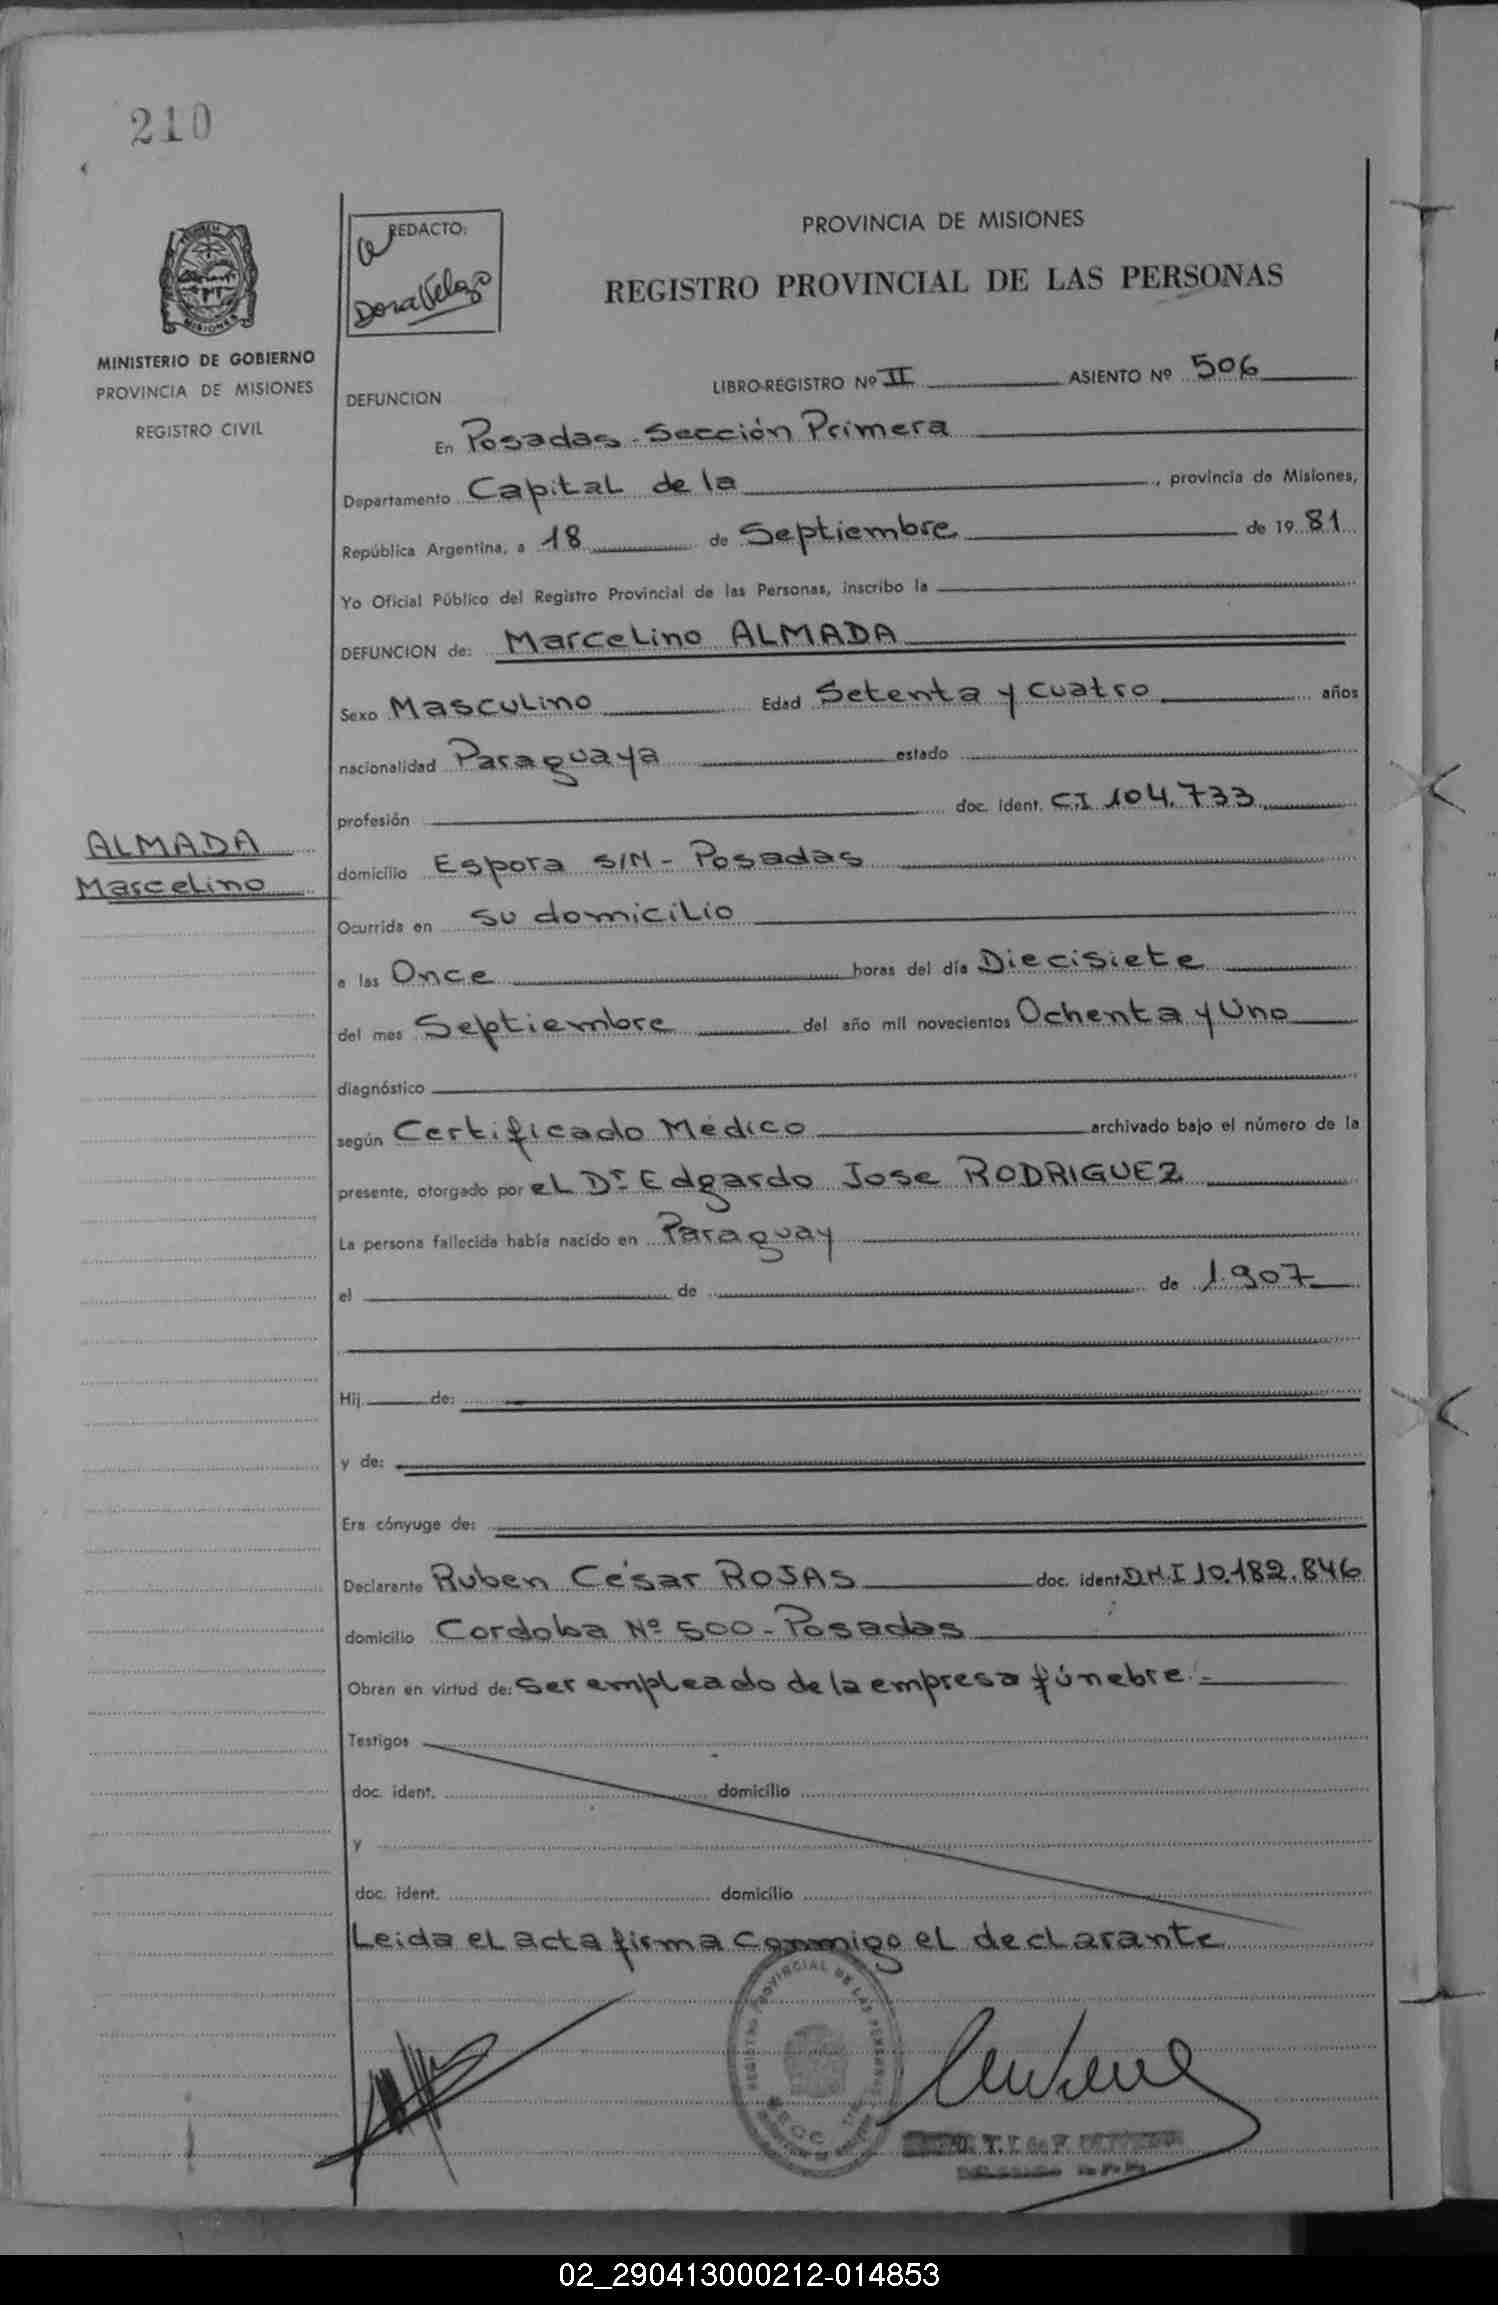 210
REDACTO:
Dora Velazo
PROVINCIA DE MISIONES
REGISTRO PROVINCIAL DE LAS PERSONAS
MISIONES
MINISTERIO DE GOBIERNO
PROVINCIA DE MISIONES
REGISTRO CIVIL
DEFUNCION LIBRO-REGISTRO Nº II ASIENTO Nº 506
En Posadas - Sección Primera
Departamento Capital de la, provincia de Misiones,
República Argentina, a 18 de Septiembre de 19 81
Yo Oficial Público del Registro Provincial de las Personas, inscribo la
DEFUNCION de: Marcelino ALMADA
Sexo Masculino Edad Setenta y cuatro años
nacionalidad Paraguaya estado
profesión doc. ident. C.I 104.733
ALMADA
Marcelino
domicilio Espora S/N - Posadas
Ocurrida en su domicilio
a las Once horas del día Diecisiete
del mes Septiembre del año mil novecientos Ochenta y Uno
diagnóstico
según Certificado Médico archivado bajo el número de la
presente, otorgado por el Dr. Edgardo Jose RODRIGUEZ
La persona fallecida había nacido en Paraguay
el de de 1.907
Hij de:
y de:
Era cónyuge de:
Declarante Ruben César ROJAS doc. ident. D.N.I 10.182.846
domicilio Cordoba Nº 500 - Posadas
Obran en virtud de: Ser empleado de la empresa fúnebre.-
Testigos
doc. ident. domicilio
y
doc. ident. domicilio
Leida el acta firma conmigo el declarante
REGISTRO PROVINCIAL DE LAS PERSONAS
02_290413000212-014853